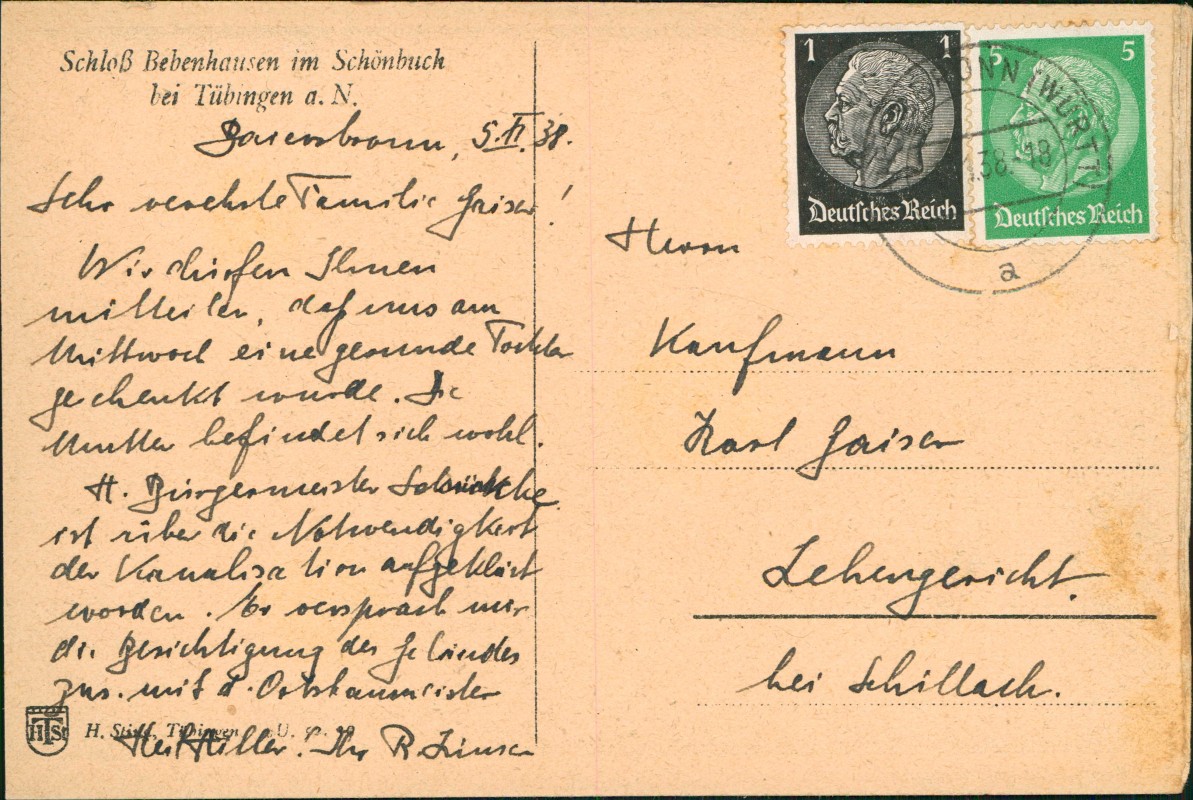 Schloß Bebenhausen im Schönbuch
bei Tübingen a. N.
Baiersbronn, 5. II. 38.
Sehr verehrte Familie Gaiser!
Wir dürfen Ihnen
mitteilen, daß uns am
Mittwoch eine gesunde Tochter
geschenkt wurde. Die
Mutter befindet sich wohl.
H. Bürgermeister
ist über die Notwendigkeit
der Kanalisation aufgeklärt
worden. Er versprach mir
die Besichtigung des Geländes
zus. mit d. Ortsbaumeister
Heil Hitler. Ihr R.
HTSt
H. Tübingen
1 1
Deutsches Reich
5 5
Deutsches Reich
ONN (WÜRTT)
38. 18
a
Herrn
Kaufmann
Karl Gaiser
Lehengericht.
bei Schiltach.